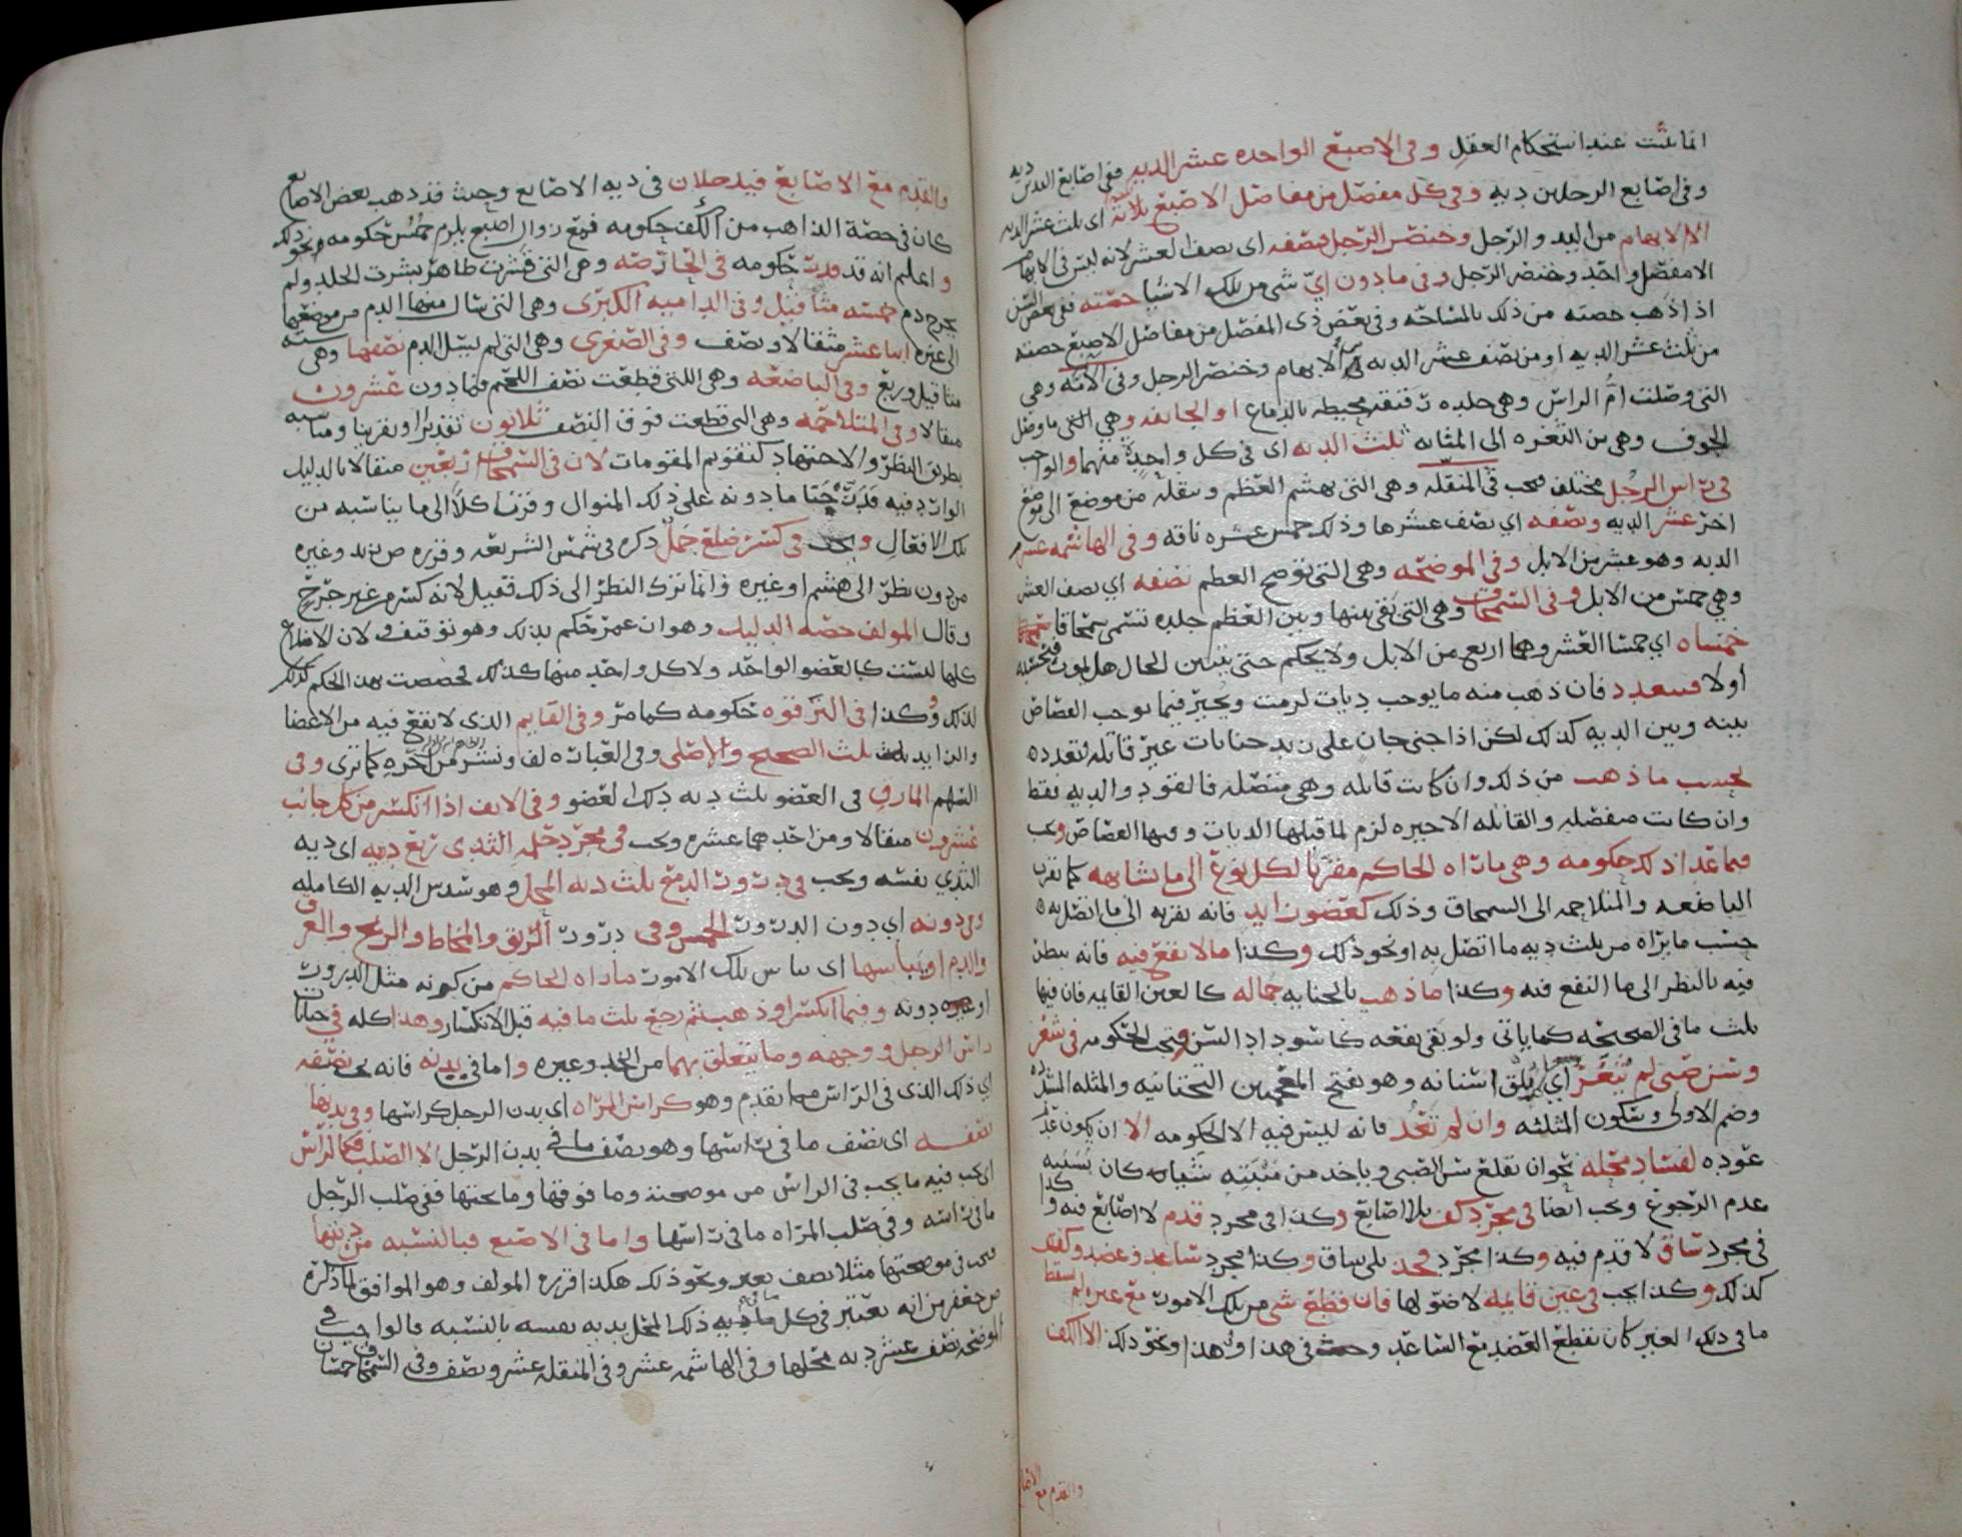 انما يثبت عند استحكام العقل وفي الاصبع الواحده عشر الديه ففي اصابع اليدين ديه
وفي اصابع الرجلين ديه وفي كل مفصل من مفاصل الاصبع ثلاثة اي ثلث عشر الديه
الا الابهام من اليد والرجل وخنصر الرجل فنصفه اي نصف العشر لانه ليس في الابهام
الا مفصل واحد وخنصر الرجل وفي ما دون اي شي من تلك الاشيا حصته ففي بعض السن
اذا ذهب حصته من ذلك بالمساحه وفي بعض ذي المفصل من مفاصل الاصبع حصته
من ثلث عشر الديه او من نصف عشر الديه في الابهام وخنصر الرجل وفي الامّه وهي
التي وصلت ام الراس وهي جلده رقيقه محيطه بالدماغ او الجايفه وهي التي ما وصل
الجوف وهي من الثغره الى المثانه ثلث الديه اي في كل واحدة منهما والواجب
في راس الرجل مختلف فيجب في المنقله وهي التي تهشم العظم وتنقله من موضع الى موضع
اخر عشر الديه ونصفه اي نصف عشرها وذلك خمس عشره ناقه وفي الهاشمه عشر
الديه وهو عشر من الابل وفي الموضحه وهي التي توضح العظم نصفه اي نصف العشر
وهي خمس من الابل وفي السمحاق وهي التي بقي بينها وبين العظم جلده تسمى سمحاقا
خمساه اي خمسا العشر وهما اربع من الابل ولا يحكم حتى يتبين الحال هل يموت
او لا فيتعدد فان ذهب منه ما يوجب ديات لزمت ويخير فيما يوجب القصاص
بينه وبين الديه كذلك لكن اذا جنى جان على زيد جنايات غير قاتله تعدده
بحسب ما ذهب من ذلك وان كانت قاتله وهي متصله فالقود والديه فقط
وان كانت منفصله والقاتله الاخيره لزم لما قبلها الديات وفيها القصاص ويجب
فيما عدا ذلك حكومه وهي ما راه الحاكم مقربا لكل نوع الى ما شابهه كما تقرب
الباضعه والمتلاحمه الى السمحاق وذلك كعضو زايد فانه تقربه الى ما اتصل به
حسب ما يراه من ثلث ديه ما اتصل به او نحو ذلك وكذا ما لا نفع فيه فانه ينظر
فيه بالنظر الى ما النفع فيه وكذا ما ذهب بالجنايه جماله كالعين القايمه فان فيها
ثلث ما في الصحيحه كما ياتي ولو بقي نفعه كاسوداد السن وتجب الحكومه في شعر
وسن صبي لم يثغر اي اسنانه وهو بفتح التحتانيه والمثله
وضم الاولى وسكون المثلثه وان لم تعد فانه ليس فيه الا الحكومه الا ان يكون عدم
عوده لفساد محله نحو ان تقلع سن الصبي وياخذ من منبته كان بسببه
عدم الرجوع ويجب ايضا في مجرد كف بلا اصابع وكذا في مجرد قدم لا اصابع فيه وكذا
في مجرد ساق لا قدم فيه وكذا مجرد فخذ بلا ساق وكذا مجرد ساعد وعضد وكفه
كذلك وكذا يجب في عين قايمه لا ضو لها فان قطع شي من تلك الامور مع غيره لم يسقط
ما في ذلك الغير كان تقطع العضد مع الساعد وجبت في هذا وهذا ونحو ذلك الا الكف
والقدم مع الاصابع
والقدم مع الاصابع فيدخلان في ديه الاصابع وحيث قد ذهب بعض الاصابع
كان في حصة الذاهب من الكف حكومه فمع زوال اصبع يلزم خمس حكومه ونحو ذلك
واعلم انه قد قدرت حكومه في الخارصه وهي التي قشرت ظاهر بشرت الجلد ولم
يخرج دم خمسه مثاقيل وفي الداميه الكبرى وهي التي سال منها الدم من موضعها
الى غيره اثنا عشر مثقالا ونصف وفي الصغرى وهي التي لم يسل الدم نصفها وهي سته
مثاقيل وربع وفي الباضعه وهي التي قطعت نصف اللحم فما دون عشرون
مثقالا وفي المتلاحمه وهي التي قطعت فوق النصف ثلاثون تقديرا وتقريبا
بطريق النظر والاجتهاد كتقويم المقومات لان في السمحاق اربعين مثقالا بالدليل
الوارد فيه ما دونه على ذلك المنوال وقربنا كلا الى ما يناسبه من
تلك الافعال ويجب في كسر ضلع جمل ذكره في شمس الشريعه وقرره ص بزيد وغيره
من دون نظر الى هشم او غيره وانما ترك النظر الى ذلك فقيل لانه كسر من غير جرح
وقال المولف خصه الدليل وهو ان عمر حكم بذلك وهو توقيف ولان الاضلاع
كلها ليست كالعضو الواحد ولا كل واحد منها كذلك فخصصت بهذا الحكم كذلك
لذلك وكذا في الترقوه حكومه كما مر وفي القايم الذي لا نفع فيه من الاعضا
والزايد ثلث الصحيح والاصلي وفي العباره لف ونشر كما ترى وفي
السهم المارق في العضو ثلث ديه ذلك العضو وفي الانف اذا انكسر من كل جانب
عشرون مثقالا ومن احدهما عشره ويجب في مجرد حلمه الثدي ربع ديه اي ديه
الثدي نفسه ويجب في درور الدمع ثلث ديه المحل وهو سدس الديه الكامله
وفي دونه اي دون الدرور الخمس وفي درور الريق والمخاط والريح والعرق
والدم اويباسها اي يباس تلك الامور ما راه الحاكم من كونه مثل الدرور
دونه وفيما انكسر او ذهب ثم رجع ثلث ما فيه قبل الانكسار وهذا كله في جنايات
راس الرجل ووجهه وما يتعلق بهما من الخد وغيره واما في بدنه فانه يجب نصفه
اي ذلك الذي في الراس مما تقدم وهو كراس المراه اي بدن الرجل كراسها وفي بدنها
نصفه اي نصف ما في راسها وهو نصف ما في بدن الرجل الا الصلب فكالراس
اي يجب فيه ما يجب في الراس من موضحه وما فوقها وما تحتها ففي صلب الرجل
ما في راسه وفي صلب المراه ما في راسها واما في الاصبع فبالنسبه من ديتها
فيجب في موضحتها مثلا نصف بعير ونحو ذلك هكذا قرره المولف وهو الموافق لما ذكره
ص جعفر من انه تعتبر في كل ما ديه ذلك المحل بديه نفسه بالنسبه قالوا فيجب في
الموضحه نصف عشر ديه محلها وفي الهاشمه عشر وفي المنقله عشر ونصف وفي السمحاق خمسان